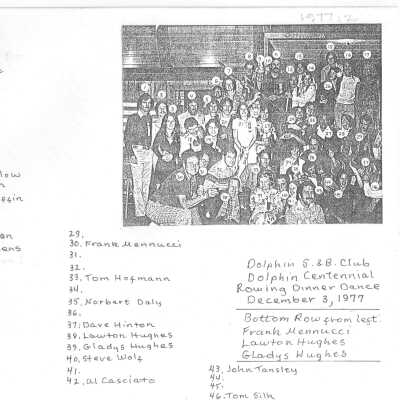 1977.12
low
29.
30. Frank Mennucci
31.
32.
33. Tom Hofmann
34.
35. Norbert Daly
36.
37. Dave Hinton
38. Lawton Hughes
39. Gladys Hughes
40. Steve Wolf
41.
42. Al Casciato
Dolphin S. & B. Club
Dolphin Centennial
Rowing Dinner Dance
December 3, 1977
Bottom Row from left.
Frank Mennucci
Lawton Hughes
Gladys Hughes
43. John Tansley
44.
45.
46. Tom Silk